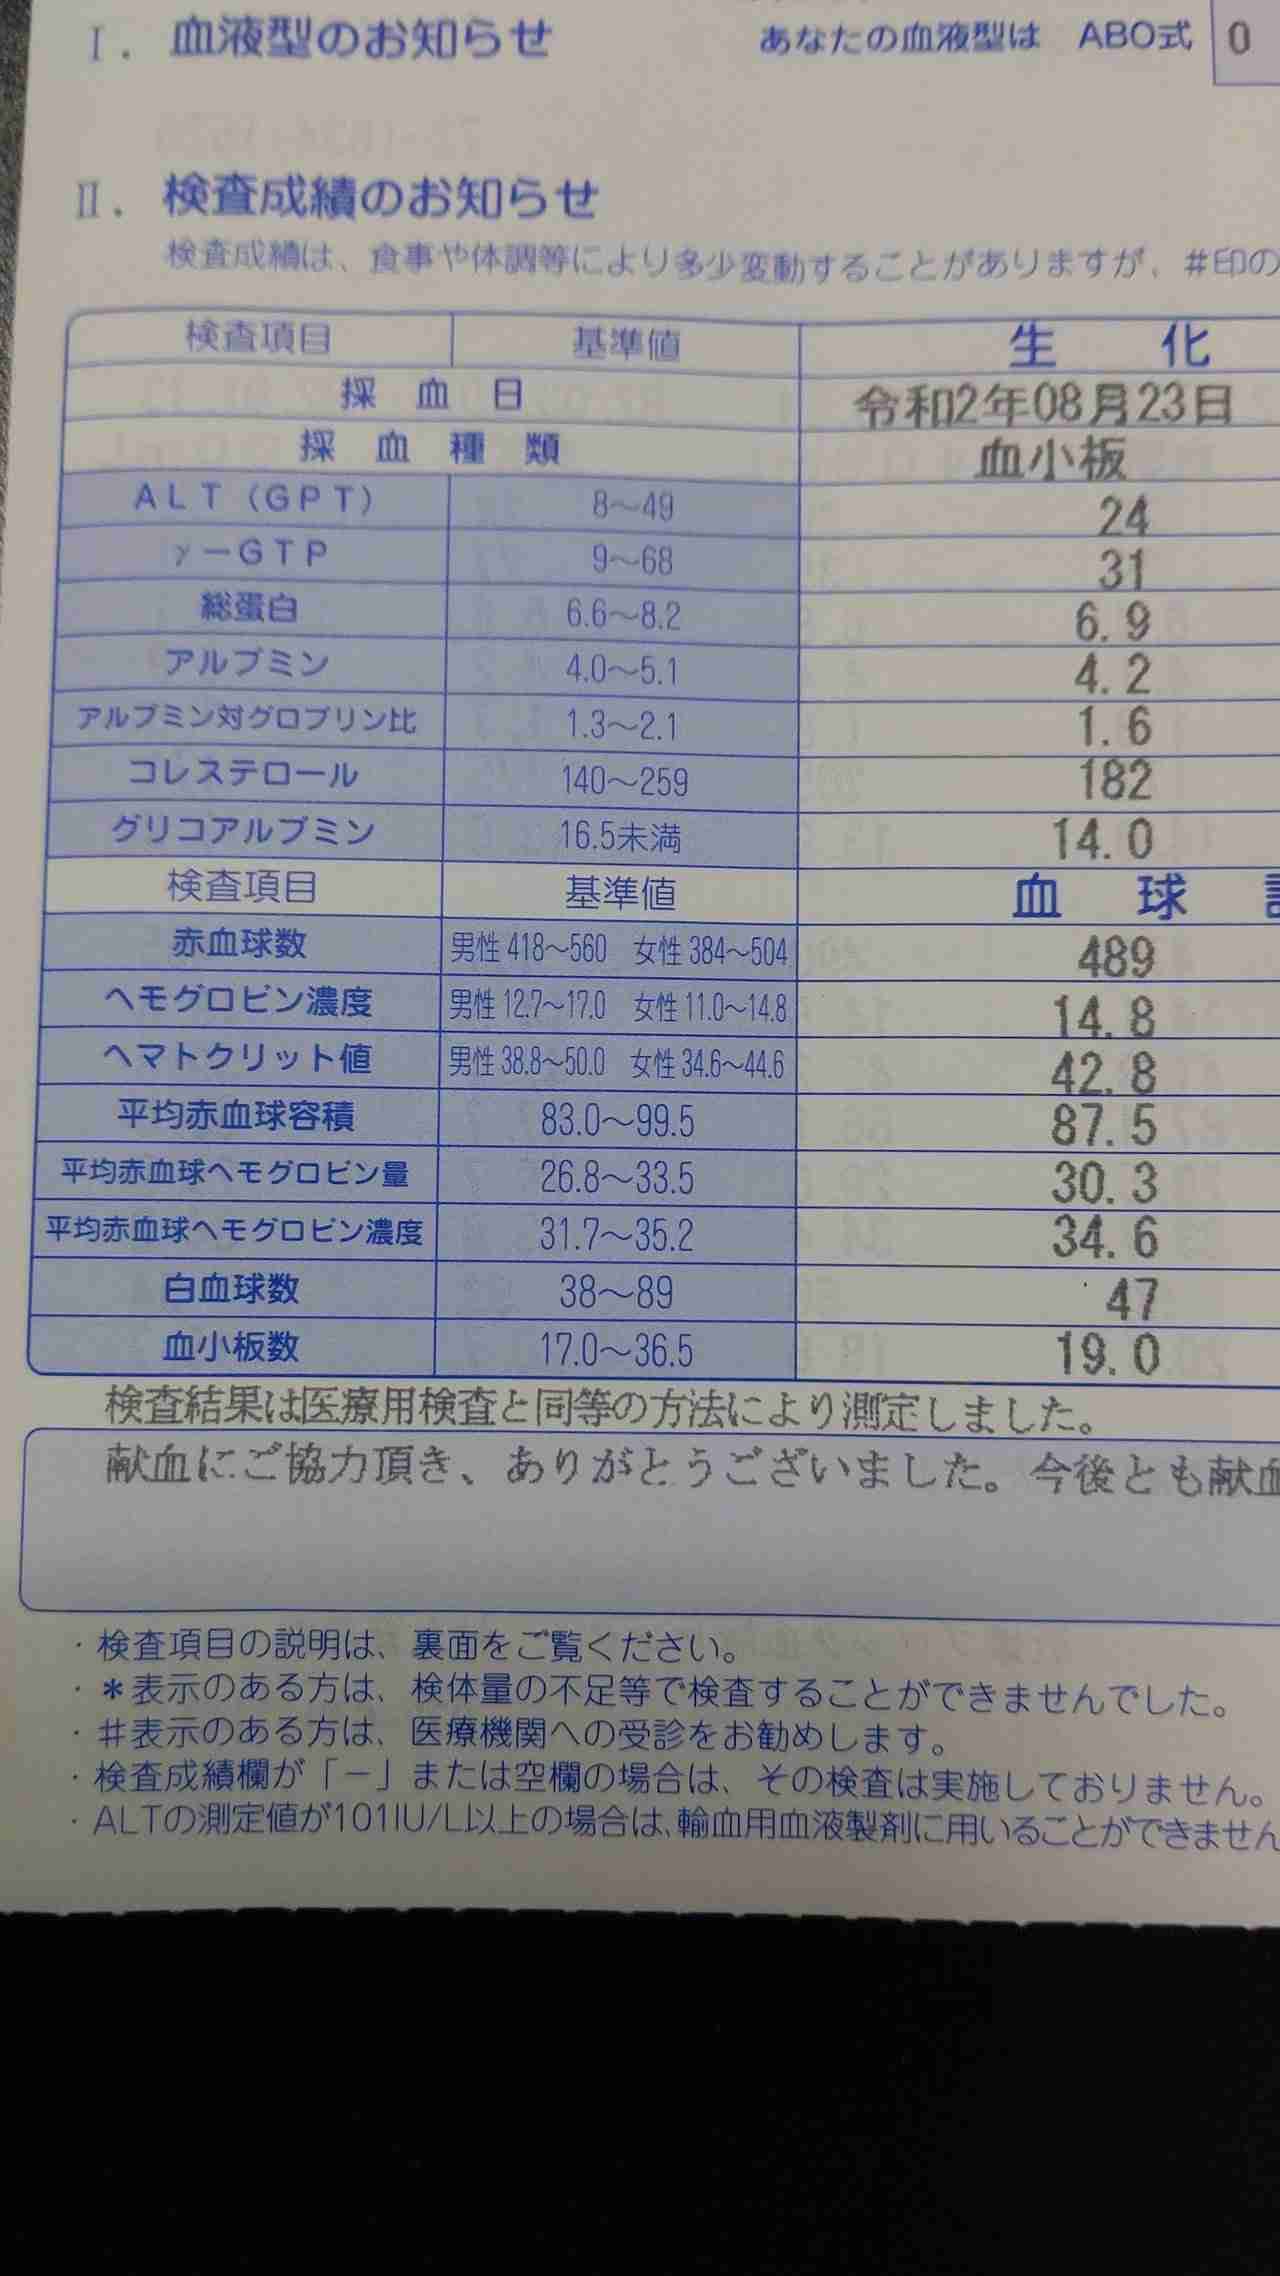 Ⅰ. 血液型のお知らせ あなたの血液型は ABO式 O
Ⅱ. 検査成績のお知らせ
検査成績は、食事や体調等により多少変動することがありますが、#印の
検査項目 基準値 生 化
採 血 日 令和2年08月23日
採 血 種 類 血小板
ALT(GPT) 8〜49 24
γ-GTP 9〜68 31
総蛋白 6.6〜8.2 6.9
アルブミン 4.0〜5.1 4.2
アルブミン対グロブリン比 1.3〜2.1 1.6
コレステロール 140〜259 182
グリコアルブミン 16.5未満 14.0
検査項目 基準値 血 球
赤血球数 男性 418〜560 女性 384〜504 489
ヘモグロビン濃度 男性 12.7〜17.0 女性 11.0〜14.8 14.8
ヘマトクリット値 男性 38.8〜50.0 女性 34.6〜44.6 42.8
平均赤血球容積 83.0〜99.5 87.5
平均赤血球ヘモグロビン量 26.8〜33.5 30.3
平均赤血球ヘモグロビン濃度 31.7〜35.2 34.6
白血球数 38〜89 47
血小板数 17.0〜36.5 19.0
検査結果は医療用検査と同等の方法により測定しました。
献血にご協力頂き、ありがとうございました。今後とも献血
・検査項目の説明は、裏面をご覧ください。
・＊表示のある方は、検体量の不足等で検査することができませんでした。
・#表示のある方は、医療機関への受診をお勧めします。
・検査成績欄が「－」または空欄の場合は、その検査は実施しておりません。
・ALTの測定値が101IU/L以上の場合は、輸血用血液製剤に用いることができません